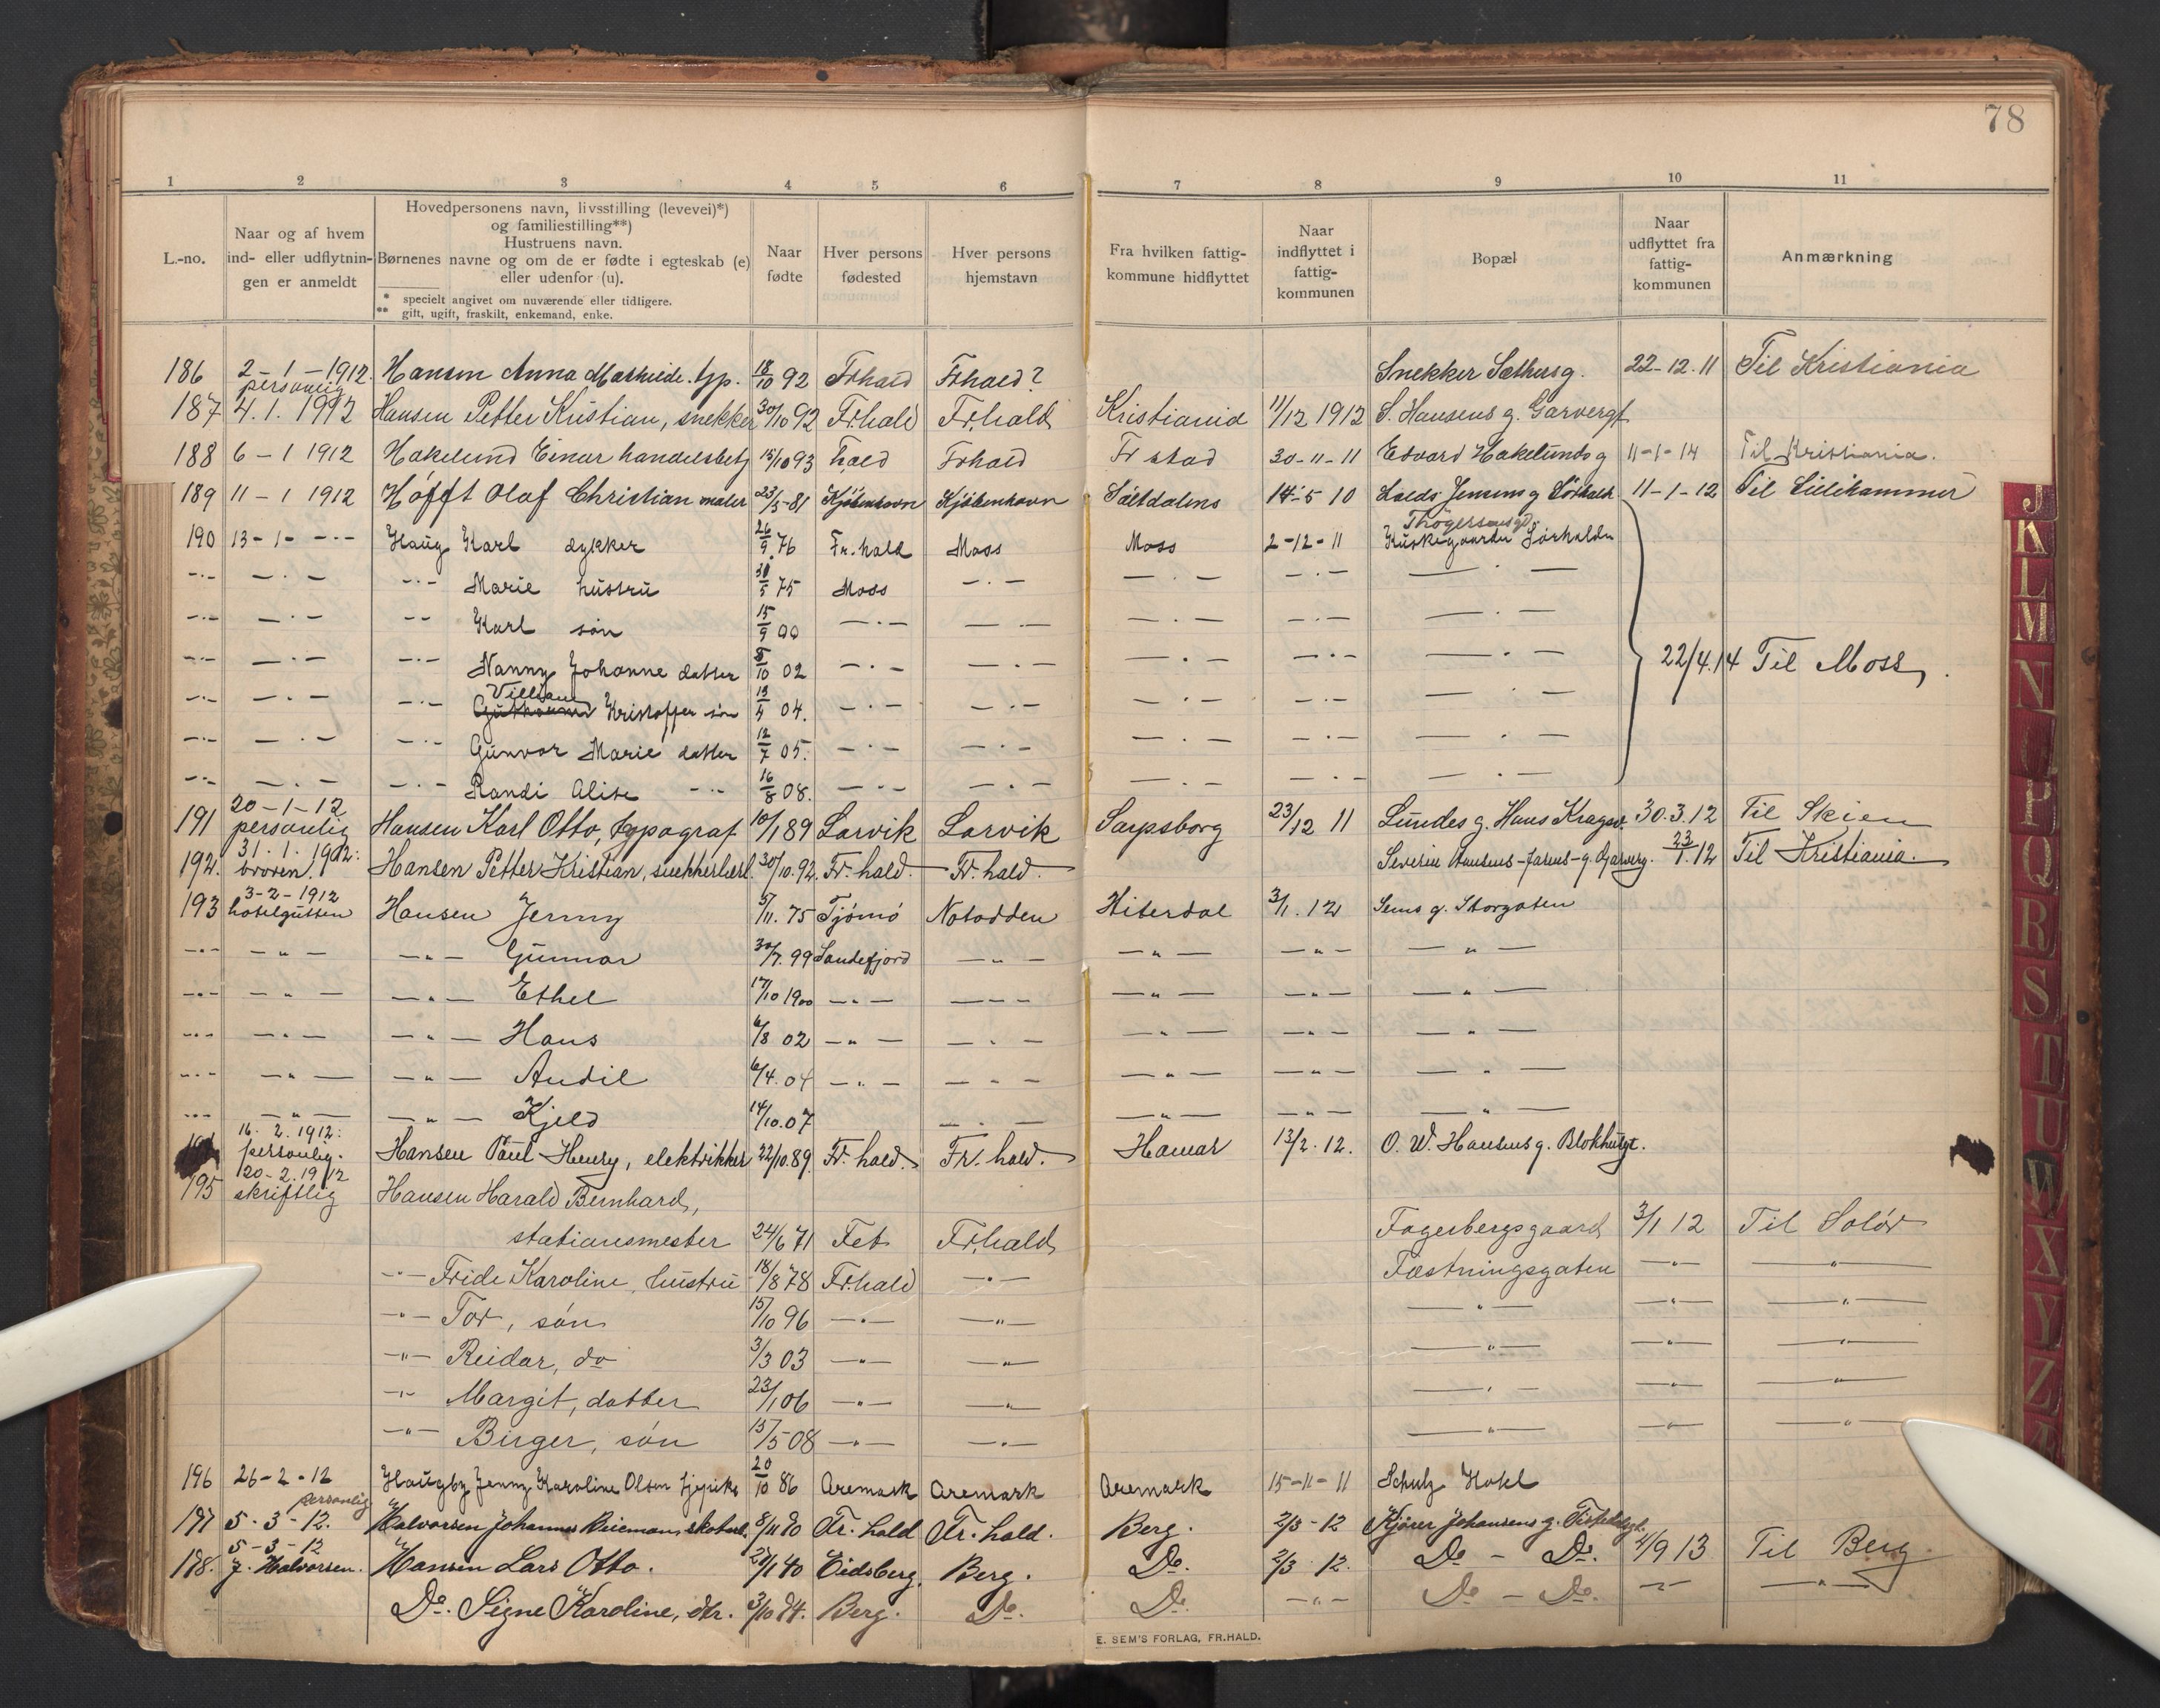 78
1 2 3 4 5 6 7 8 9 10 11
L.-no.
Naar og af hvem
ind- eller udflytnin-
gen er anmeldt
Hovedpersonens navn, livsstilling (levevei)*)
og familiestilling**)
Hustruens navn.
Børnenes navne og om de er fødte i egteskab (e)
eller udenfor (u).
* specielt angivet om nuværende eller tidligere.
** gift, ugift, fraskilt, enkemand, enke.
Naar
fødte
Hver persons
fødested
Hver persons
hjemstavn
Fra hvilken fattig-
kommune hidflyttet
Naar
indflyttet i
fattig-
kommunen
Bopæl
Naar
udflyttet fra
fattig-
kommunen
Anmærkning
186 2-1-1912. personlig Hansen Anna Mathilde. 18/10 92 Frhald Frhald? Snekker Sæthersg. 22-12.11 Til Kristiania
187 4.1.1912 Hansen Petter Kristian, snekker 30/10 92 Fr.hald Fr.hald Kristiania 11/12 1912 S. Hansens g. Garvergt
188 6-1 1912 Hakelund Einar handelsbetj 15/10 93 Fr.hald Frhald Frstad 30-11-11 Edvard Hakelunds g 11-1-14 Til Kristiania.
189 11-1 1912 Høfft Olaf Christian maler 23/3-81 Kjöbenhavn Kjöbenhavn Saltdalens 14-5 10 Jensens g Sörhald 11-1-12 Til Lillehammer
190 13-1- -"- Haug Karl dykker 26/9 76 Fr.hald Moss Moss 2-12-11 Thøgersensgd. Kuskegaarden Sörhalden
-"- -"- -"- Marie hustru 30/5 75 Moss -"- -"- -"- -"-
-"- -"- -"- Karl søn 15/9 00 -"- -"- -"- -"- -"-
-"- -"- -"- Nanny Johanne datter 8/10 02 -"- -"- -"- -"- -"- 22/4.14 Til Moss.
-"- -"- -"- Villiam Kristoffer søn 13/4 04. -"- -"- -"- -"- -"-
-"- -"- -"- Gunvor Marie datter 12/7 05. -"- -"- -"- -"- -"-
-"- -"- -"- Randi Alise -"- 16/8 08. -"- -"- -"- -"- -"-
191 20-1-12 personlig Hansen Karl Otto, typograf 10/1 89 Larvik Larvik Sarpsborg 23/12 11 Lundes g. Hans Kragsv. 30.3.12 Til Skien
192. 31.1.1912: broren. Hansen Petter Kristian, snekkerlærl. 30/10.92. Fr.hald. Fr.hald. Severin Hansens-Jarens-g. Garverg. 23/1.12 Til Kristiania.
193 3-2-1912 hotelgutten Hansen Jenny 5/11.75 Tjømø Notodden Hiterdal 3/1.12 Sems g. Storgaten
-"- -"- -"- Gunnar 30/7.99 Sandefjord -"- -"- -"- -"-
-"- -"- -"- Ethel 17/10 1900 -"- -"- -"- -"- -"-
-"- -"- -"- Hans 6/8 02 -"- -"- -"- -"- -"-
-"- -"- -"- Audil 6/4.04 -"- -"- -"- -"- -"-
-"- -"- -"- Kjeld 14/10.07 -"- -"- -"- -"-
16.2.1912: personlig. Hansen Paul Henry, elektrikker 22/10.89. Fr.hald. Fr.hald. Hamar 13/2.12. O. W. Hansens g. Blokhusgt.
195 20-2.1912 skriftlig Hansen Harald Bernhard,
stationsmester 24/6 71 Fet Fr.hald Fagerbergsgaard 3/1 12 Til Solør
-"- Fride Karoline, hustru 18/8 78 Fr.hald -"- Fæstningsgaten -"- -"-
-"- Tor, søn 15/10 96 -"- -"- -"- -"- -"-
-"- Reidar, do 3/3 03 -"- -"- -"- -"- -"-
-"- Margit, datter 23/1 06 -"- -"- -"- -"- -"-
-"- Birger, søn 15/5 08 -"- -"- -"- -"- -"-
196 26-2-12 Haugby Jenny Karoline Olsen tjpike 20/10 86 Aremark Aremark Aremark 15-11-11 Schulz Hotel
197 5-3-12. personlig Halvorsen Johannes 8/11 80 Fr.hald Fr.hald. Berg. 2/3-12 Kjører Johansens g.
198. 5-3-12 J. Halvorsen. Hansen Lars Otto. 28/1 40 Eidsberg. Berg. Do. 2/3.12. Do - Do. 4/9 13 Til Berg
Do. Signe Karoline, dtr. 3/10 84. Berg. Do. Do. -"- Do - Do. -"- -"-
E. SEM'S FORLAG, FR.HALD.
J
K
L
M
N
O
P
Q
R
S
T
U
W
X
Y
Z